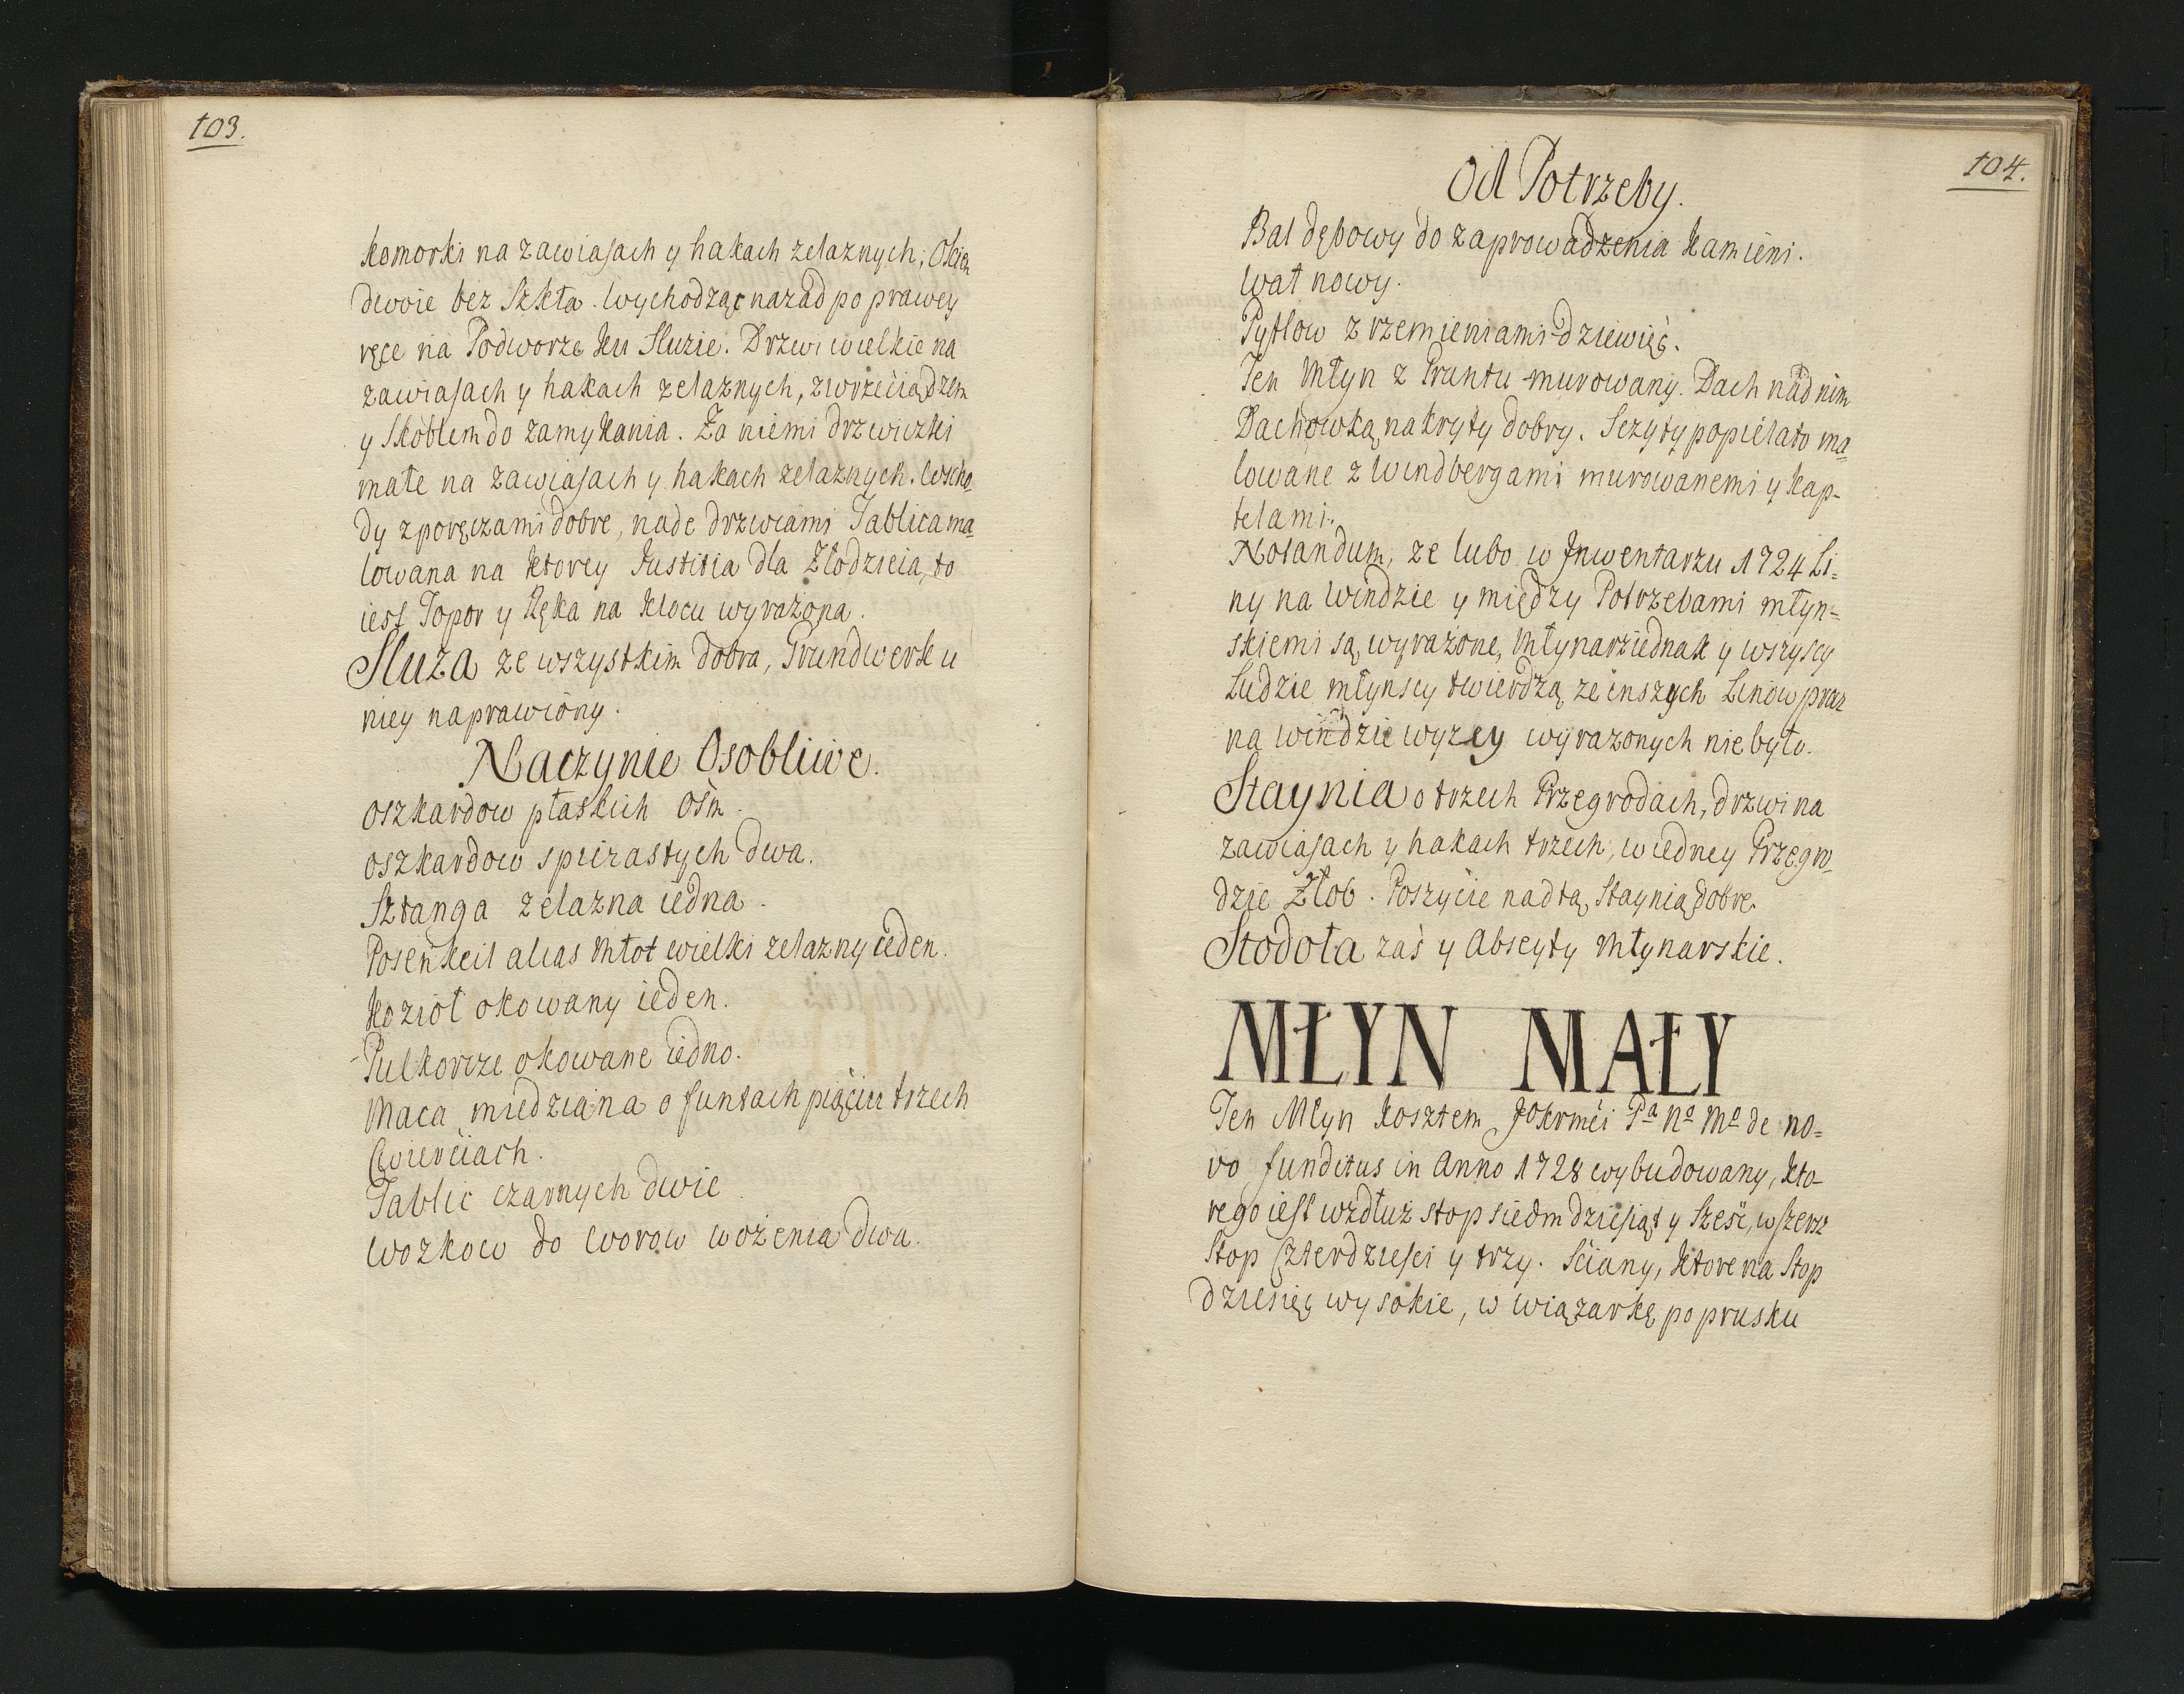 103.
komorki na zawiasach y hakach zelaznych, Okien
dwoie bez Szkła. Wychodząc nazad po prawey
ręce na Podworze ku Sluzie. Drzwi wielkie na
zawiasach y hakach zelaznych, z wrzeciądzem
y Skoblem do zamykania. Za niemi drzwiczki
małe na zawiasach y hakach zelaznych. Wscho-
dy z poręczami dobre, nade drzwiami Tablica ma-
lowana na ktorey Justitia dla Złodzieia, to
iest Topor y Ręka na klocu wyrażona.
Sluza ze wszystkim dobra, Grundwerk u
niey naprawiony.
Naczynie Osobliwe.
Oszkardow płaskich ośm.
Oszkardow spiczastych dwa.
Sztanga zelazna iedna.
Posenkeil alias Młot wielki zelazny ieden.
Kozioł okowany ieden.
Pulkorcze okowane iedno.
Maca miedziana o funtach piąciu trzech
Cwierciach.
Tablic czarnych dwie
Wozkow do Worow wożenia dwa.
104.
Od Potrzeby.
Bal dębowy do zaprowadzenia kamieni.
Wał nowy.
Pytlow z rzemieniami dziewięć.
Ten Młyn z Gruntu murowany. Dach nad nim
Dachowką nakryty dobry. Sczyty popielato ma-
lowane z Windbergami murowanemi y kap-
telami.
Notandum, ze lubo w Inwentarzu 1724 Li-
ny na Windzie y między Potrzebami młyn-
skiemi są wyrażone, Młynarz iednak y wszyscy
Ludzie młynscy twierdzą ze inszych Linow procz
na windzie wyzey wyrazonych nie było.
Staynia o trzech Przegrodach, drzwi na
zawiasach y hakach trzech, w iedney Przegro-
dzie Złob. Poszycie nad tą Staynią dobre.
Stodoła zaś y Abscyty Młynarskie.
MŁYN MAŁY
Ten Młyn kosztem JOKrmći Pa No Mo de no-
vo funditus in Anno 1728 wybudowany, kto-
rego iest wzdłuż stop siedmdziesiąt y Sześć, wszerz
Stop Czterdziesci y trzy. Sciany, ktore na Stop
dziesięć wysokie, w wiązarkę po prusku